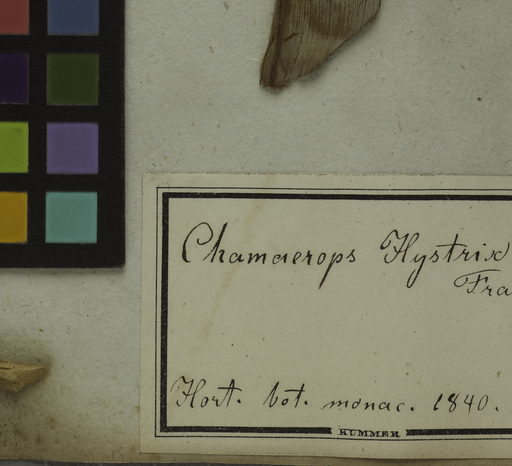 Chamaerops Hystrix
Fra
Hort. bot. monac. 1840.
KUMMER